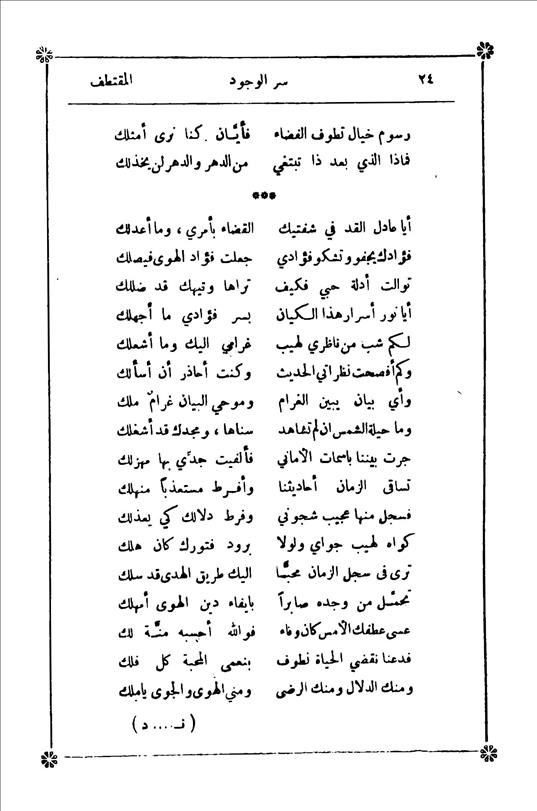 ٢٤ سر الوجود المقتطف
رسوم خيال تطوف الفضاء فأيَّان كنا نرى أمثلك
فماذا الذي بعد ذا تبتغي من الدهر والدهر لن يخذلك
***
أيا عادل القد في شفتيك القضاء بأمري ، وما أعدلك
فؤادك يجفو وتشكو فؤادي جعلت فؤاد الهوى فيصلك
توالت أدلة حبي فكيف تراها وتيهك قد ضللك
أيا نور أسرار هذا الكيان بسر فؤادي ما أجهلك
لكم شب من ناظري لهيب غرامي اليك وما أشعلك
وكم أفصحت نظراتي الحديث وكنت أحاذر أن أسألك
وأي بيان يبين الغرام وموحي البيان غرامٌ ملك
وما حيلة الشمس ان لم تشاهد سناها ، ومجدك قد أشغلك
جرت بيننا باسمات الأماني فألفيت جدّي بها مهزلك
تساقى الزمان أحاديثنا وأفرط مستعذباً منهلك
فسجل منها عجيب شجوني وفرط دلالك كي يعذلك
كواه لهيب جواي ولولا برود فتورك كان هلك
ترى في سجل الزمان محبًّا اليك طريق الهدى قد سلك
تحمّل من وجده صابراً بايفاء دين الهوى أمهلك
عسى عطفك الأمس كان وفاء فوالله أحسبه منّة لك
فدعنا نقضي الحياة نطوف بنعمى المحبة كل فلك
ومنك الدلال ومنك الرضى ومني الهوى والجوى ياملك
( ف .... د )